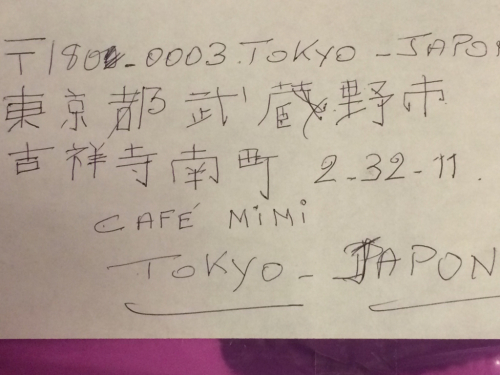 〒180-0003.TOKYO - JAPON
東京都武蔵野市
吉祥寺南町 2-32-11.
CAFÉ MiMi
TOKYO - JAPON